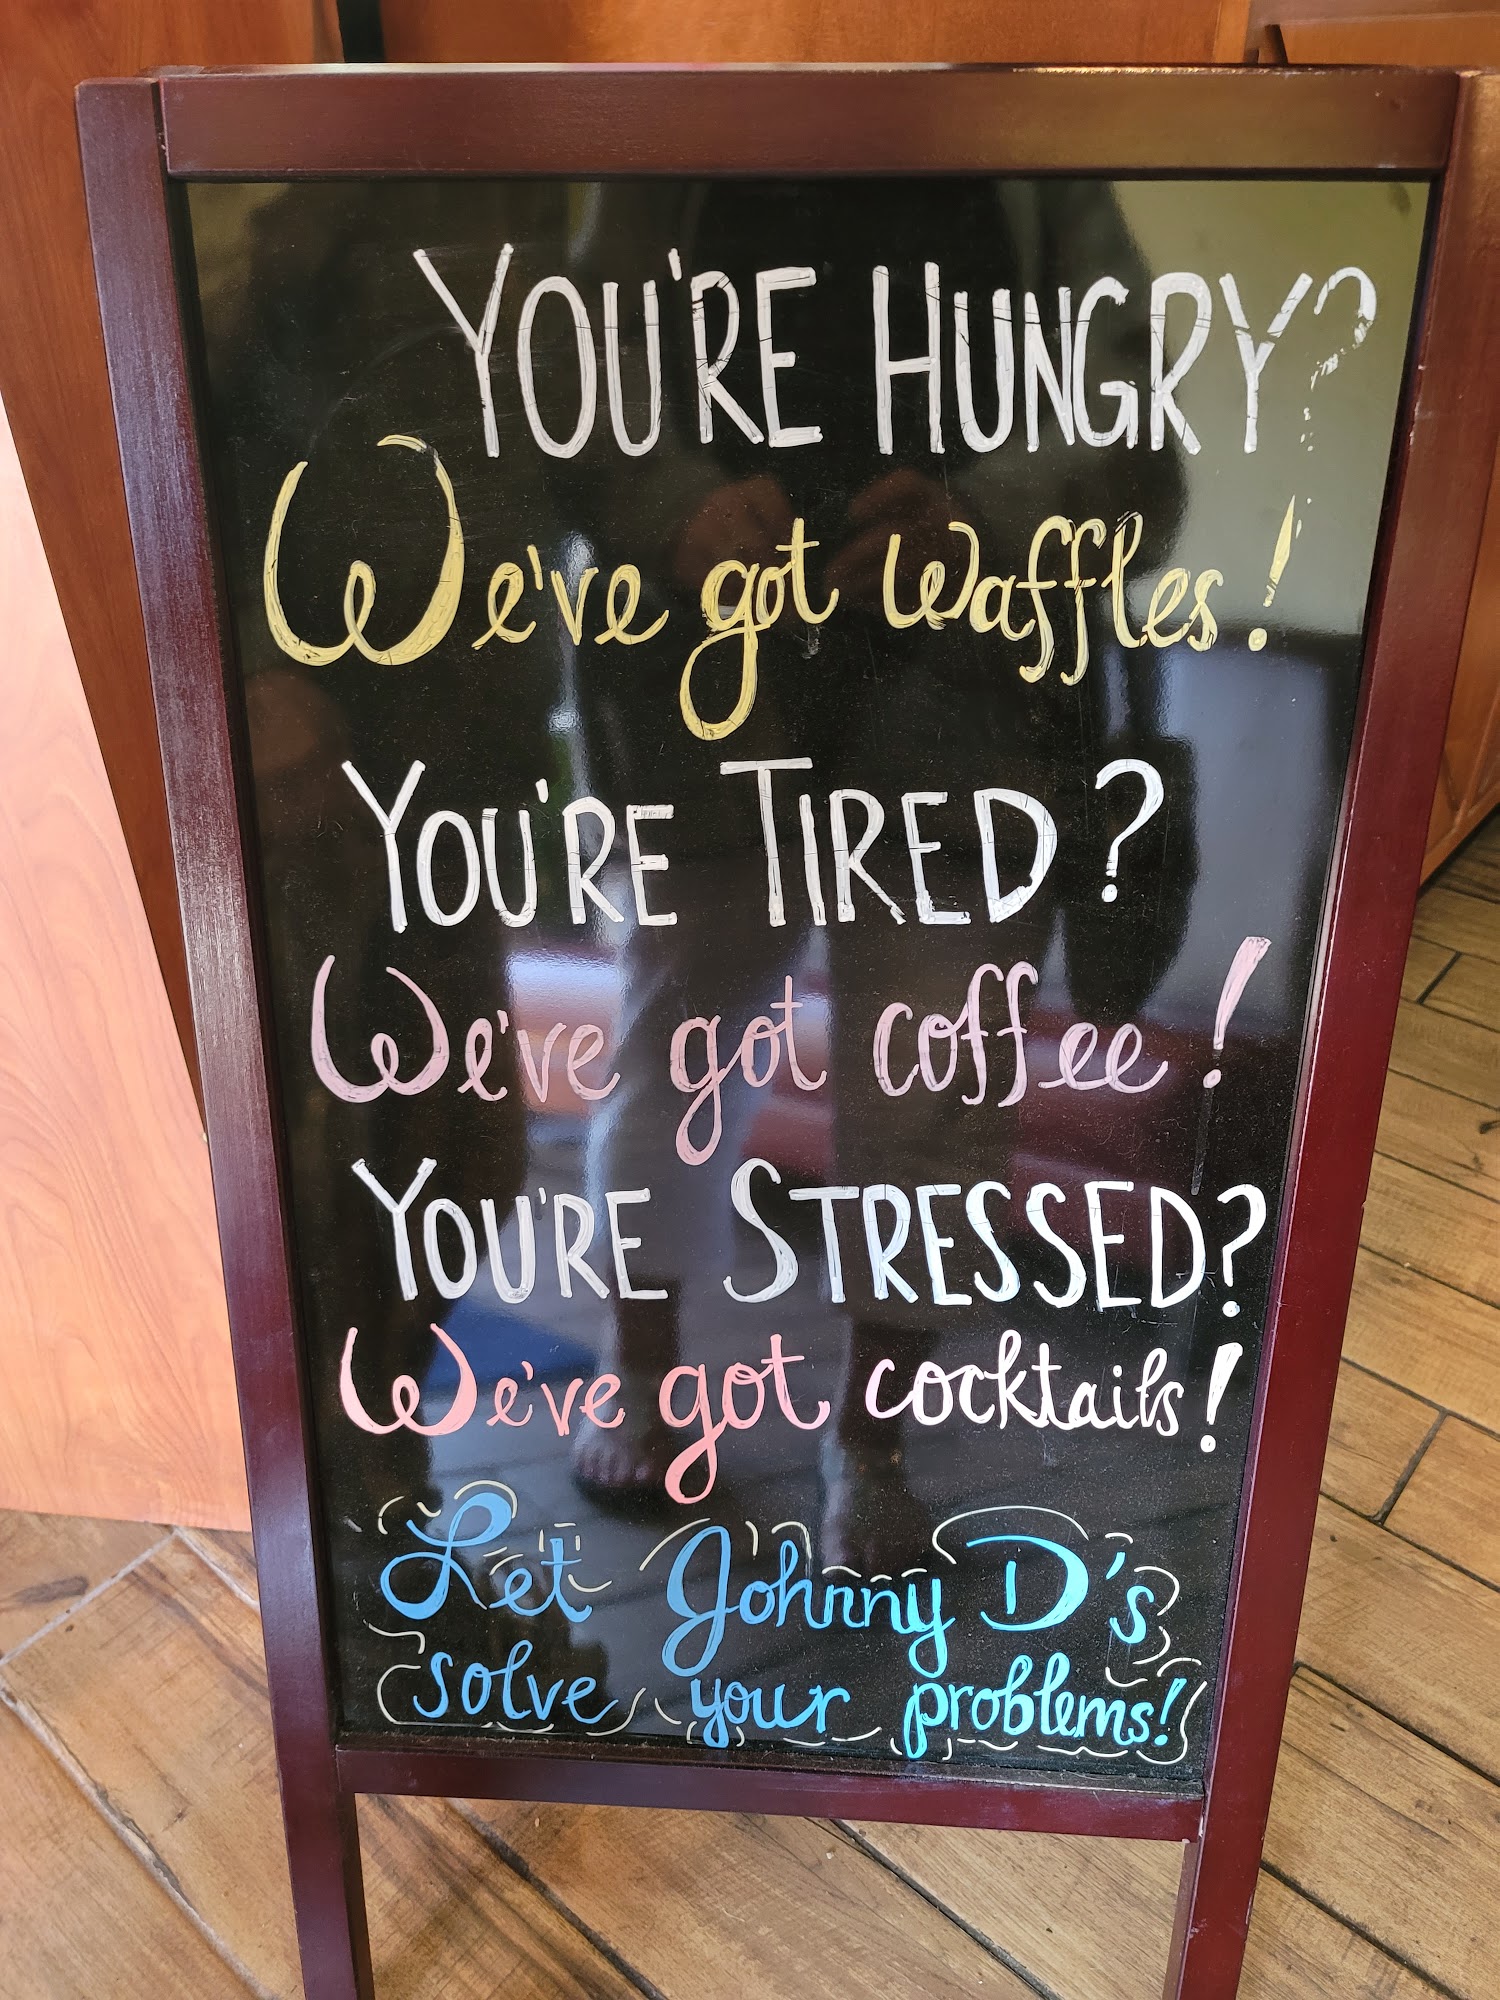 YOU'RE HUNGRY?
We've got waffles!
YOU'RE TIRED?
We've got coffee!
YOU'RE STRESSED?
We've got cocktails!
Let Johnny D's
solve your problems!